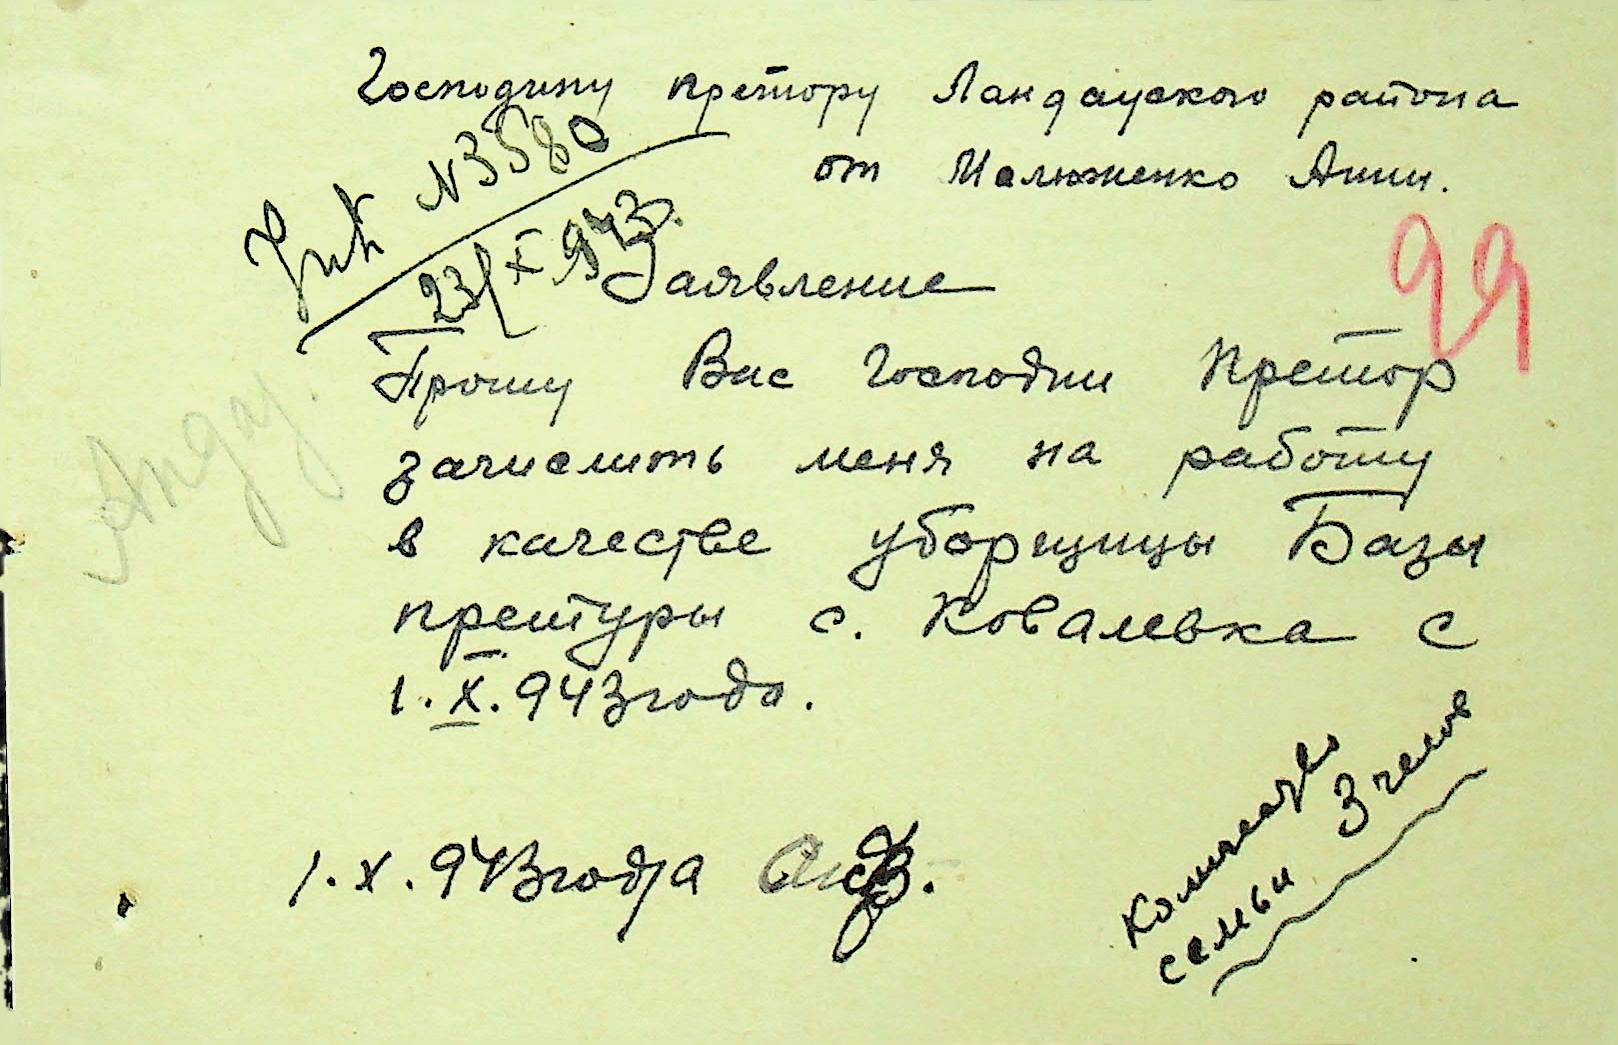 Господину претору Ландауского района
от Малюженко Анны.
№ 3580
23/X 943.
Заявление
99
Прошу Вас Господин Претор
зачислить меня на работу
в качестве уборщицы Базы
претуры с. Ковалевка с
1. X. 943 года.
1. X. 943 года
Количество
семьи 3 челов